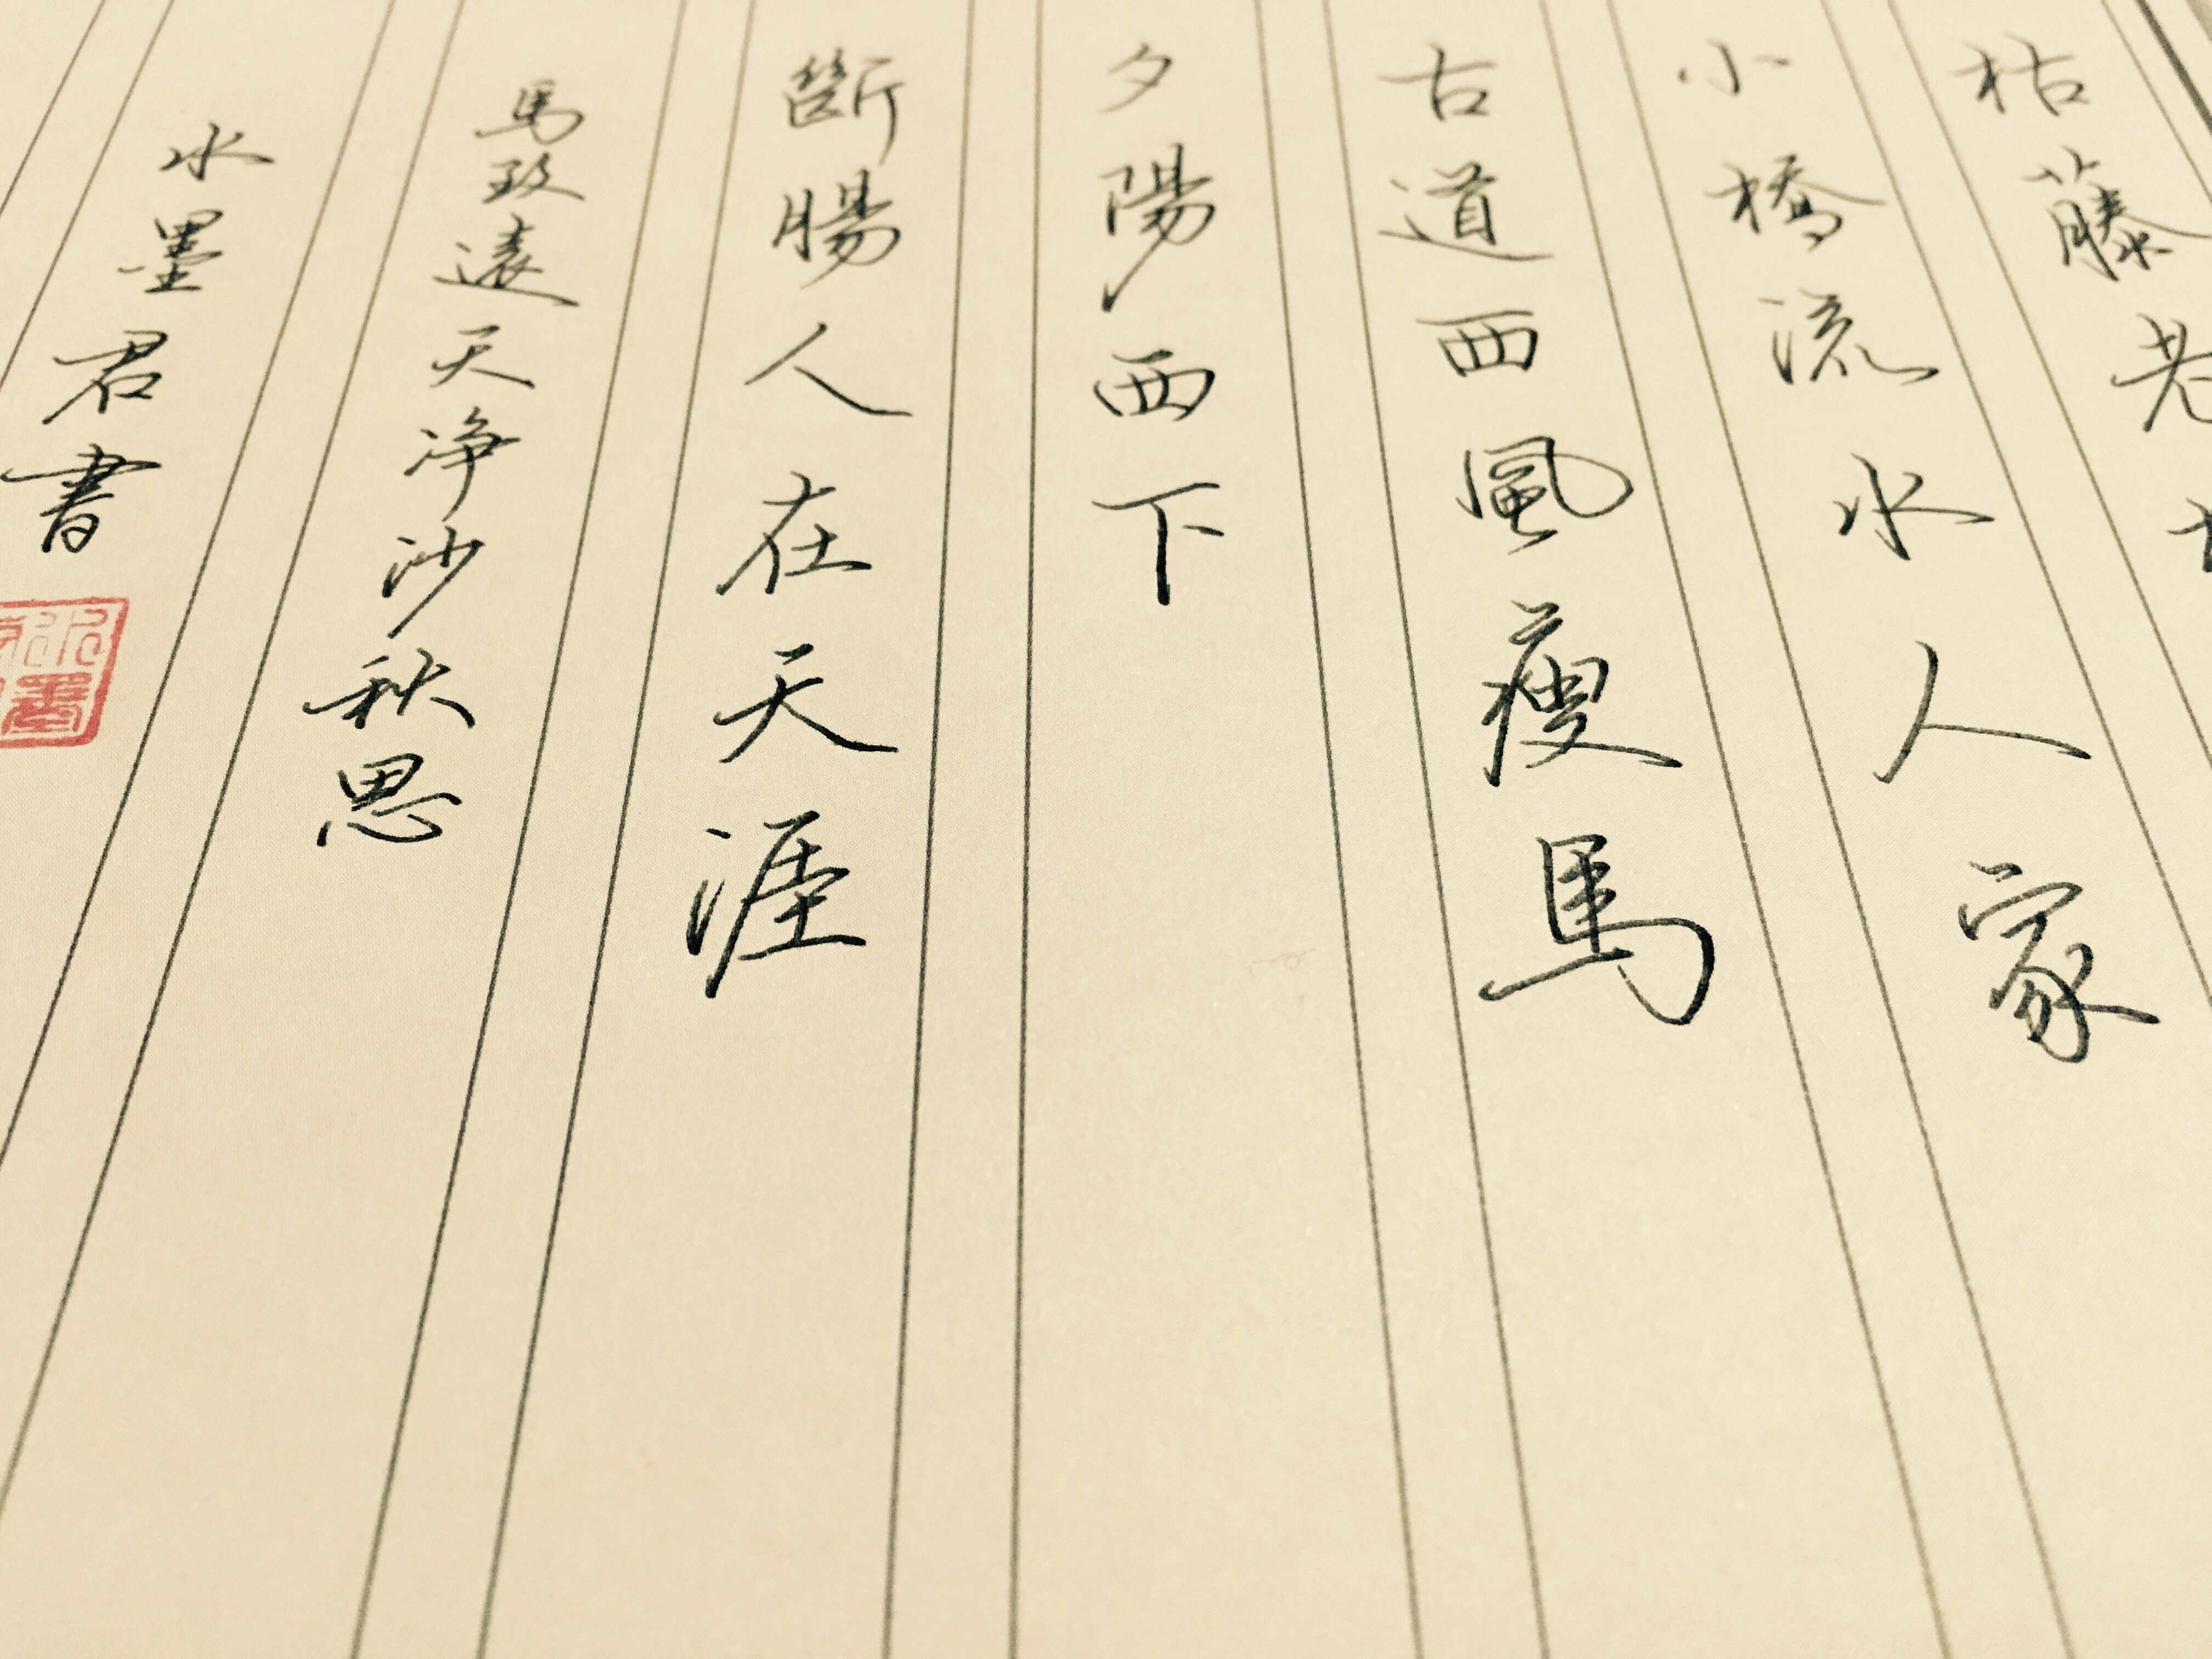 枯藤老
小橋流水人家
古道西風瘦馬
夕陽西下
斷腸人在天涯
馬致遠天净沙秋思
水墨君書